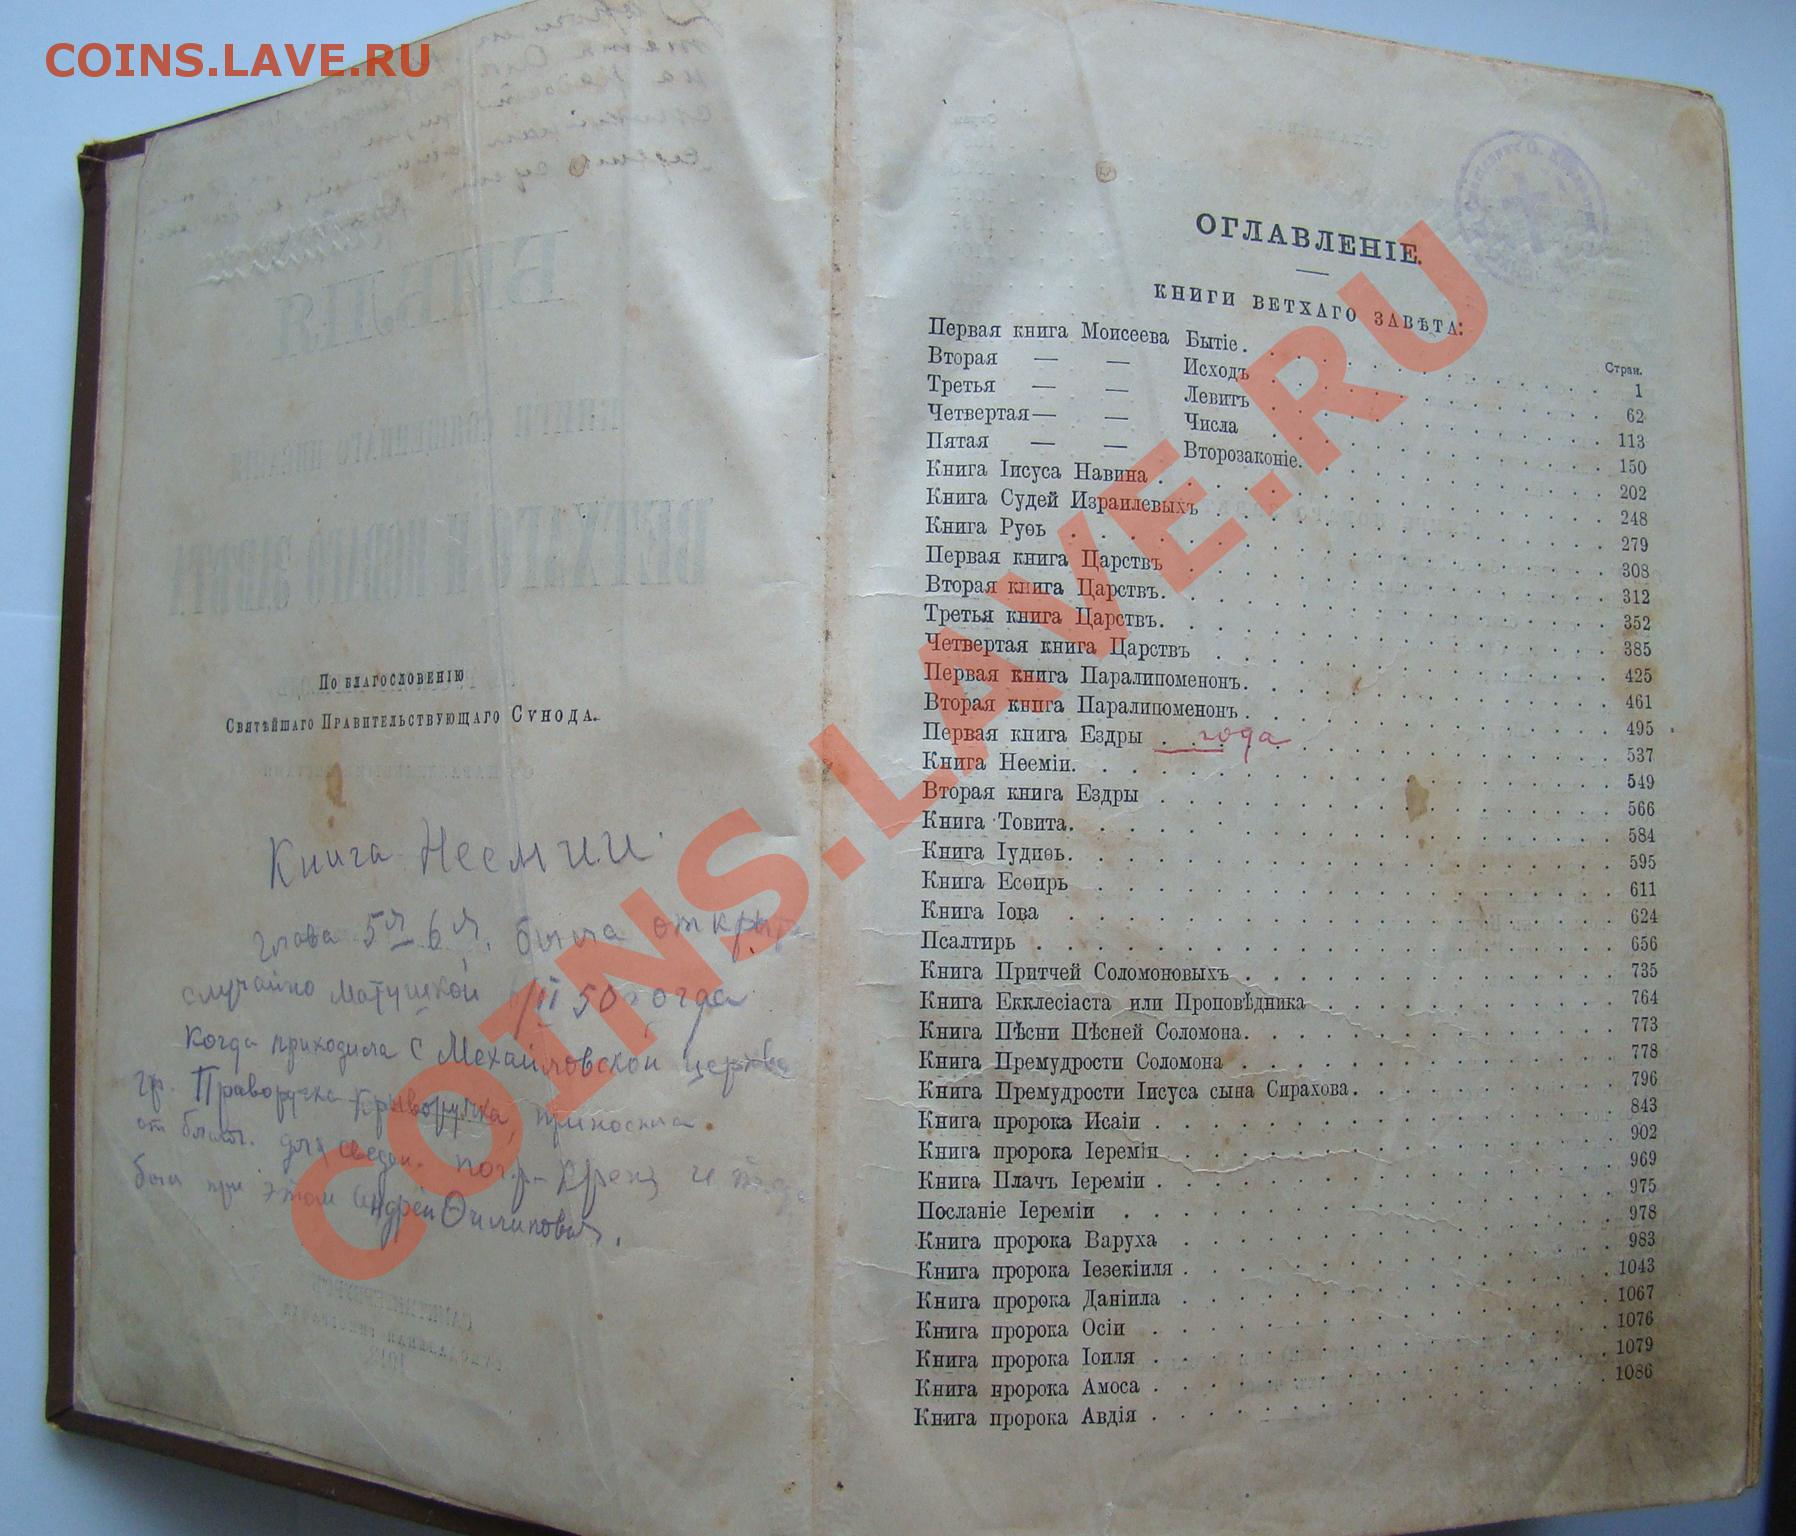 COINS.LAVE.RU
По благословенію
Святѣйшаго Правительствующаго Сѵнода.
Книга Неемии.
глава 5я 6я. была
случайно матушкой II 50
Когда приходила с Михайловской
гр. Криворучка
для
был при этом Андрей
ОГЛАВЛЕНІЕ.
КНИГИ ВЕТХАГО ЗАВѢТА:
Стран.
Первая книга Моисеева Бытіе. 1
Вторая — — Исходъ 62
Третья — — Левитъ 113
Четвертая — — Числа 150
Пятая — — Второзаконіе. 202
Книга Іисуса Навина 248
Книга Судей Израилевыхъ 279
Книга Руѳь 308
Первая книга Царствъ 312
Вторая книга Царствъ. 352
Третья книга Царствъ. 385
Четвертая книга Царствъ 425
Первая книга Паралипоменонъ. 461
Вторая книга Паралипоменонъ 495
Первая книга Ездры года 537
Книга Нееміи. 549
Вторая книга Ездры 566
Книга Товита. 584
Книга Іудиѳь. 595
Книга Есѳирь 611
Книга Іова 624
Псалтирь 656
Книга Притчей Соломоновыхъ 735
Книга Екклесіаста или Проповѣдника 764
Книга Пѣсни Пѣсней Соломона. 773
Книга Премудрости Соломона 778
Книга Премудрости Іисуса сына Сирахова. 796
Книга пророка Исаіи 843
Книга пророка Іереміи 902
Книга Плачъ Іереміи 969
Посланіе Іереміи 975
Книга пророка Варуха 978
Книга пророка Іезекіиля 983
Книга пророка Даніила 1043
Книга пророка Осіи 1067
Книга пророка Іоиля 1076
Книга пророка Амоса 1079
Книга пророка Авдія 1086
COINS.LAVE.RU